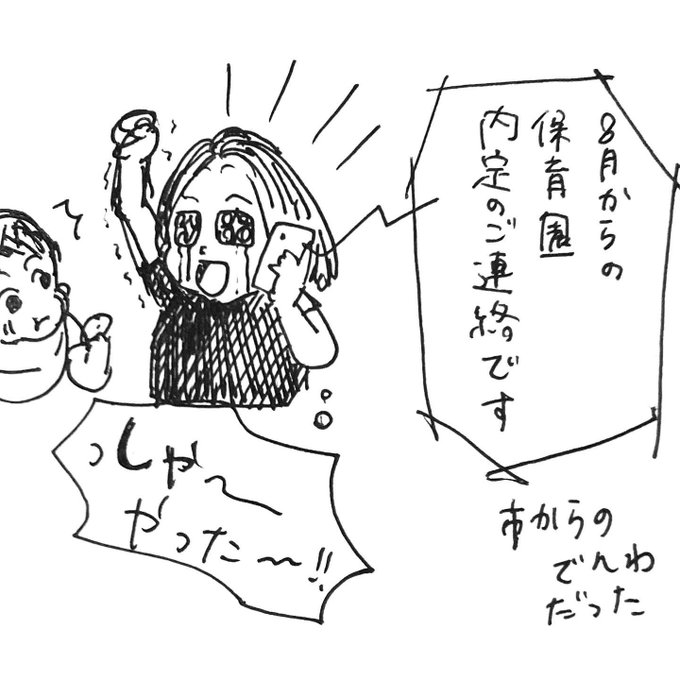 8月からの
保育園
内定のご連絡です
っしゃ〜
やった〜!!
市からの
でんわ
だった